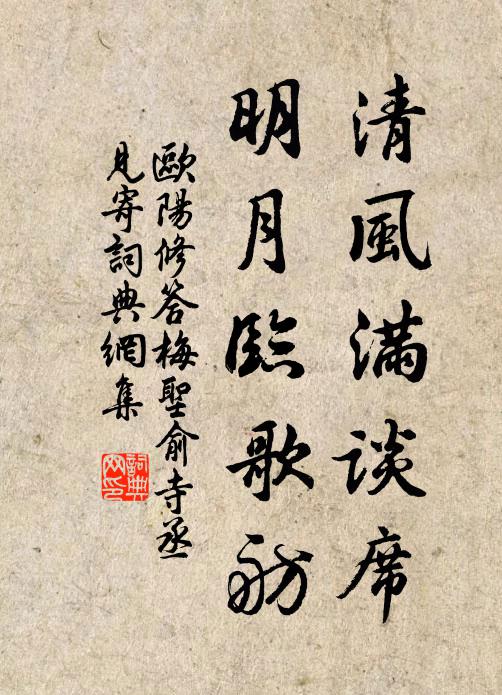 清風滿談席
明月臨歌舫
歐陽修答梅聖俞寺丞
見寄詞典網集
詞典
网印